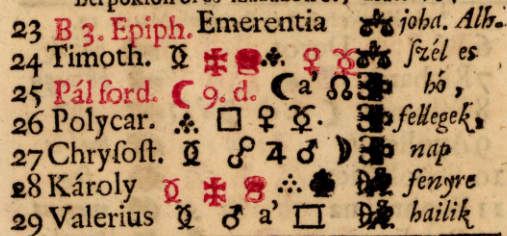 23 B 3. Epiph. Emerentia joha. Alb.
24 Timoth. ☿ ♀ szél es
25 Pál ford. ☾ 9. d. ☾ a' ☊ hó,
26 Polycar. □ ♀ fellegek,
27 Chryſoſt. ☍ ♃ ♂ ☽ nap
28 Károly fenyre
29 Valerius ♂ a' □ hailik